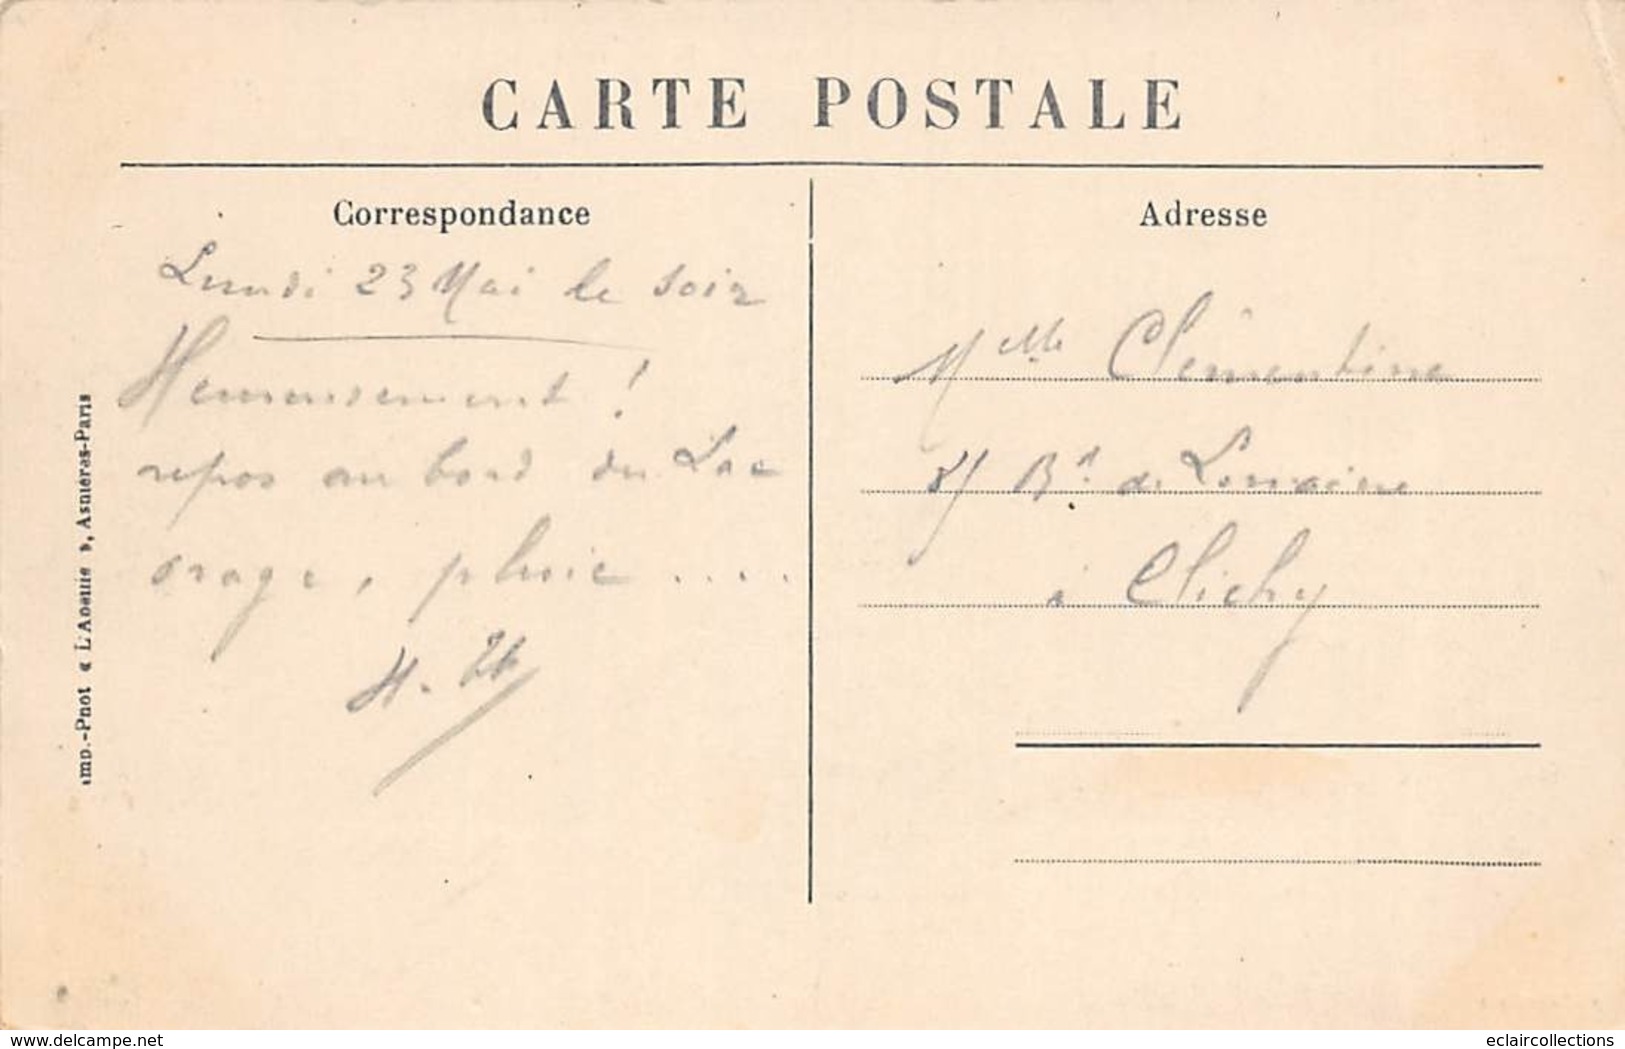 CARTE POSTALE
Correspondance
Lundi 23 Mai le soir
Heureusement !
repos au bord du Lac
orage, pluie ....
Adresse
Melle Clémentine
Bd de Lorraine
à Clichy
Imp.-Phot « L'Abeille », Asnières-Paris
www.delcampe.net
eclaircollections